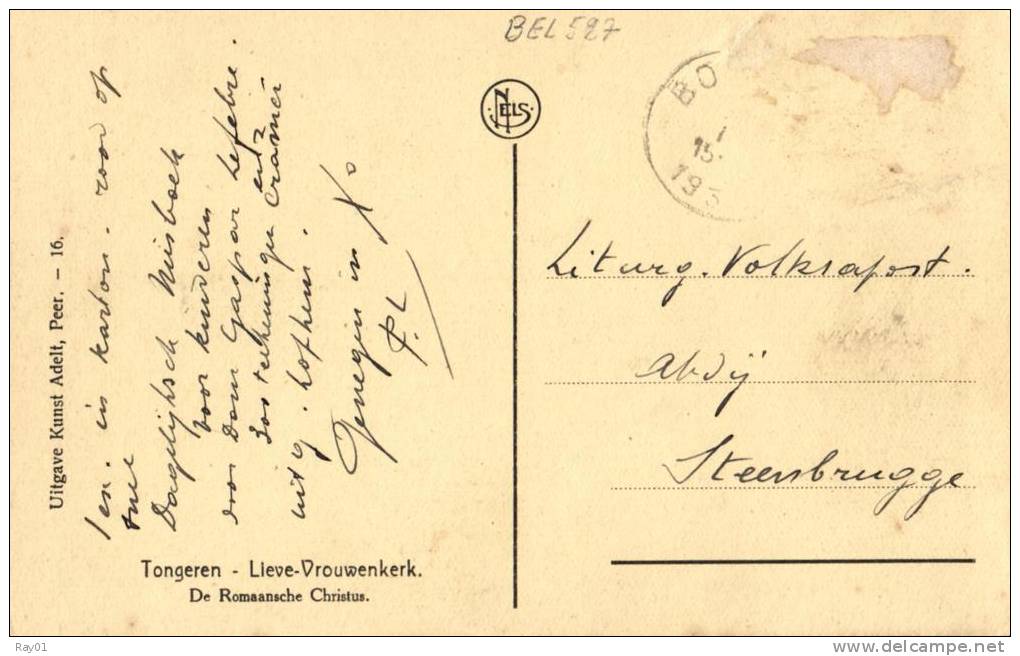 BEL 527
BO
15
193
NELS
Uitgave Kunst Adelt, Peer. — 16.
1 ex. in karton. rood op
sne
Dagelijksch Misboek
voor kinderen
door Dom Gaspar Lefebre.
enz
Jos teekeningen Cramer
uitg. Lophem.
Genegen in X°
P.L
Liturg. Volksapost.
Abdij
Steenbrugge
Tongeren - Lieve-Vrouwenkerk.
De Romaansche Christus.
Ray01
delcampe.net